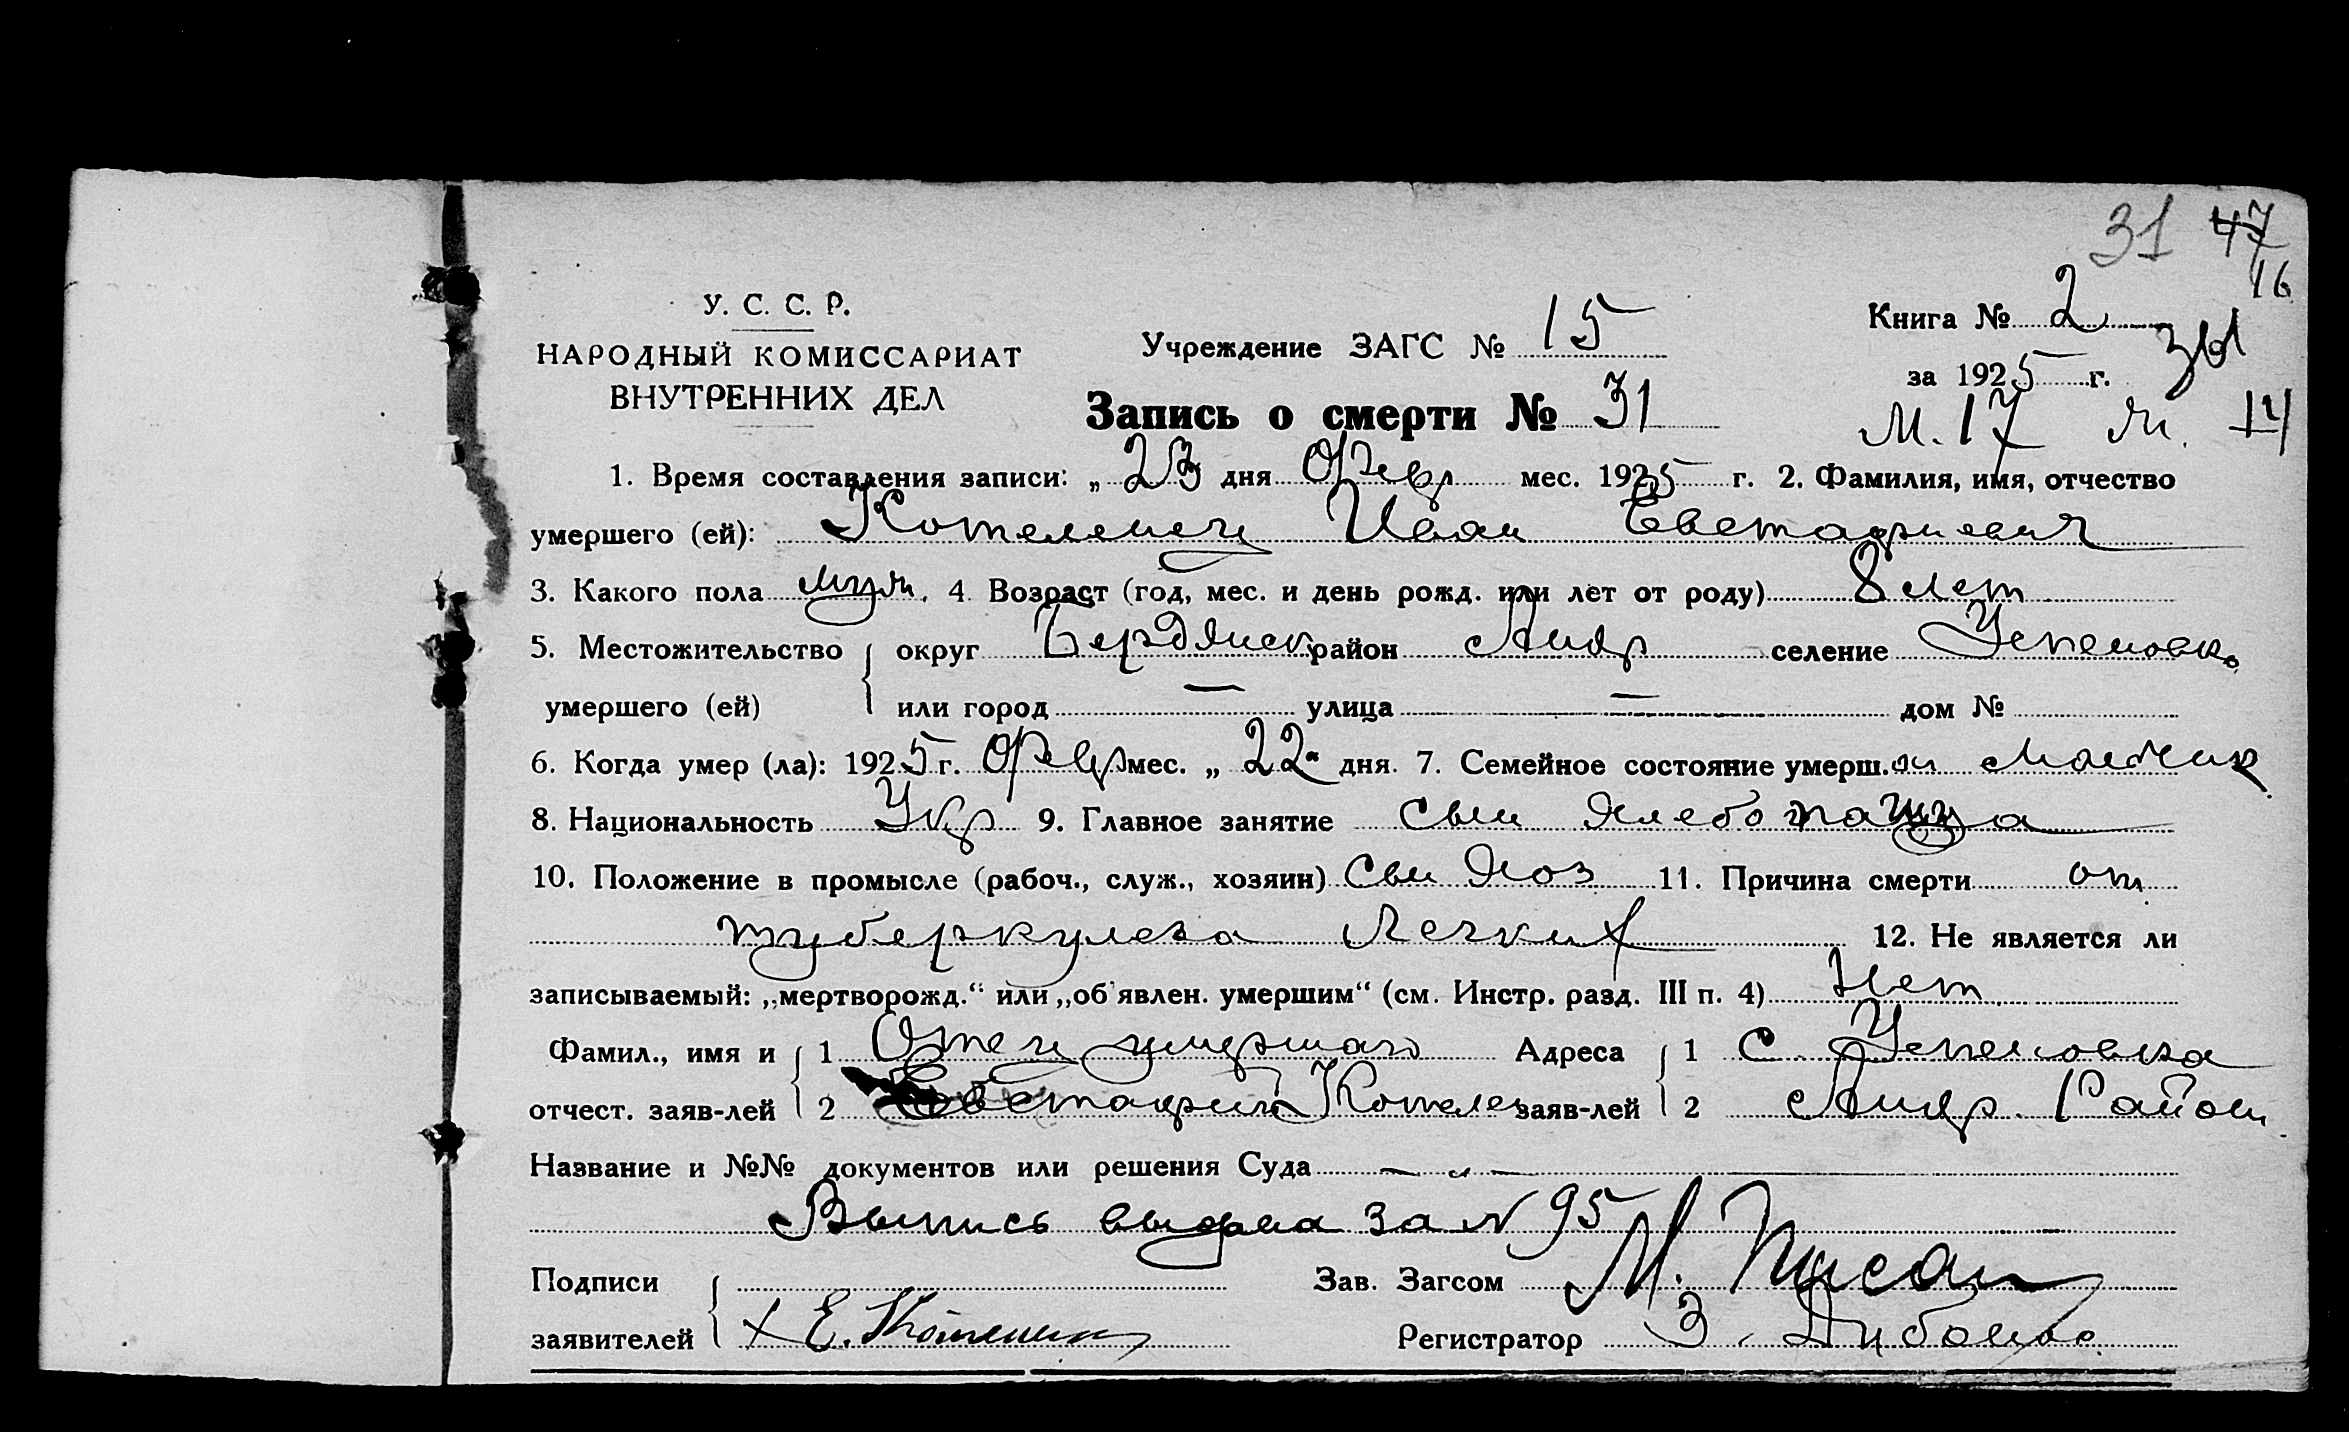 31 47
16
У. С. С. Р.
НАРОДНЫЙ КОМИССАРИАТ
ВНУТРЕННИХ ДЕЛ
Учреждение ЗАГС № 15
Книга № 2
за 1925 г.
Запись о смерти № 31
М. 17 М. 14
1. Время составления записи: „23 дня Февр мес. 1925 г. 2. Фамилия, имя, отчество
умершего (ей): Котеленец Иван Евстафиевич
3. Какого пола муж. 4. Возраст (год, мес. и день рожд. или лет от роду) 8 лет
5. Местожительство округ Бердянск район Андр селение Успеновка
умершего (ей) или город — улица — дом №
6. Когда умер (ла): 1925 г. Февр мес. „22" дня. 7. Семейное состояние умерш. ой мальчик
8. Национальность Укр 9. Главное занятие сын хлебопашца
10. Положение в промысле (рабоч., служ., хозяин) Сын хоз 11. Причина смерти от
туберкулеза легких 12. Не является ли
записываемый: „мертворожд.“ или „об'явлен. умершим“ (см. Инстр. разд. III п. 4) Нет
Фамил., имя и 1 Отец умершаго Адреса 1 С. Успеновка
отчест. заяв-лей 2 Евстафий Котеле заяв-лей 2 Андр. Район
Название и №№ документов или решения Суда — „ —
Выпись выдана за № 95
Подписи Зав. Загсом М. Писан
заявителей х Е. Котеленец Регистратор З.